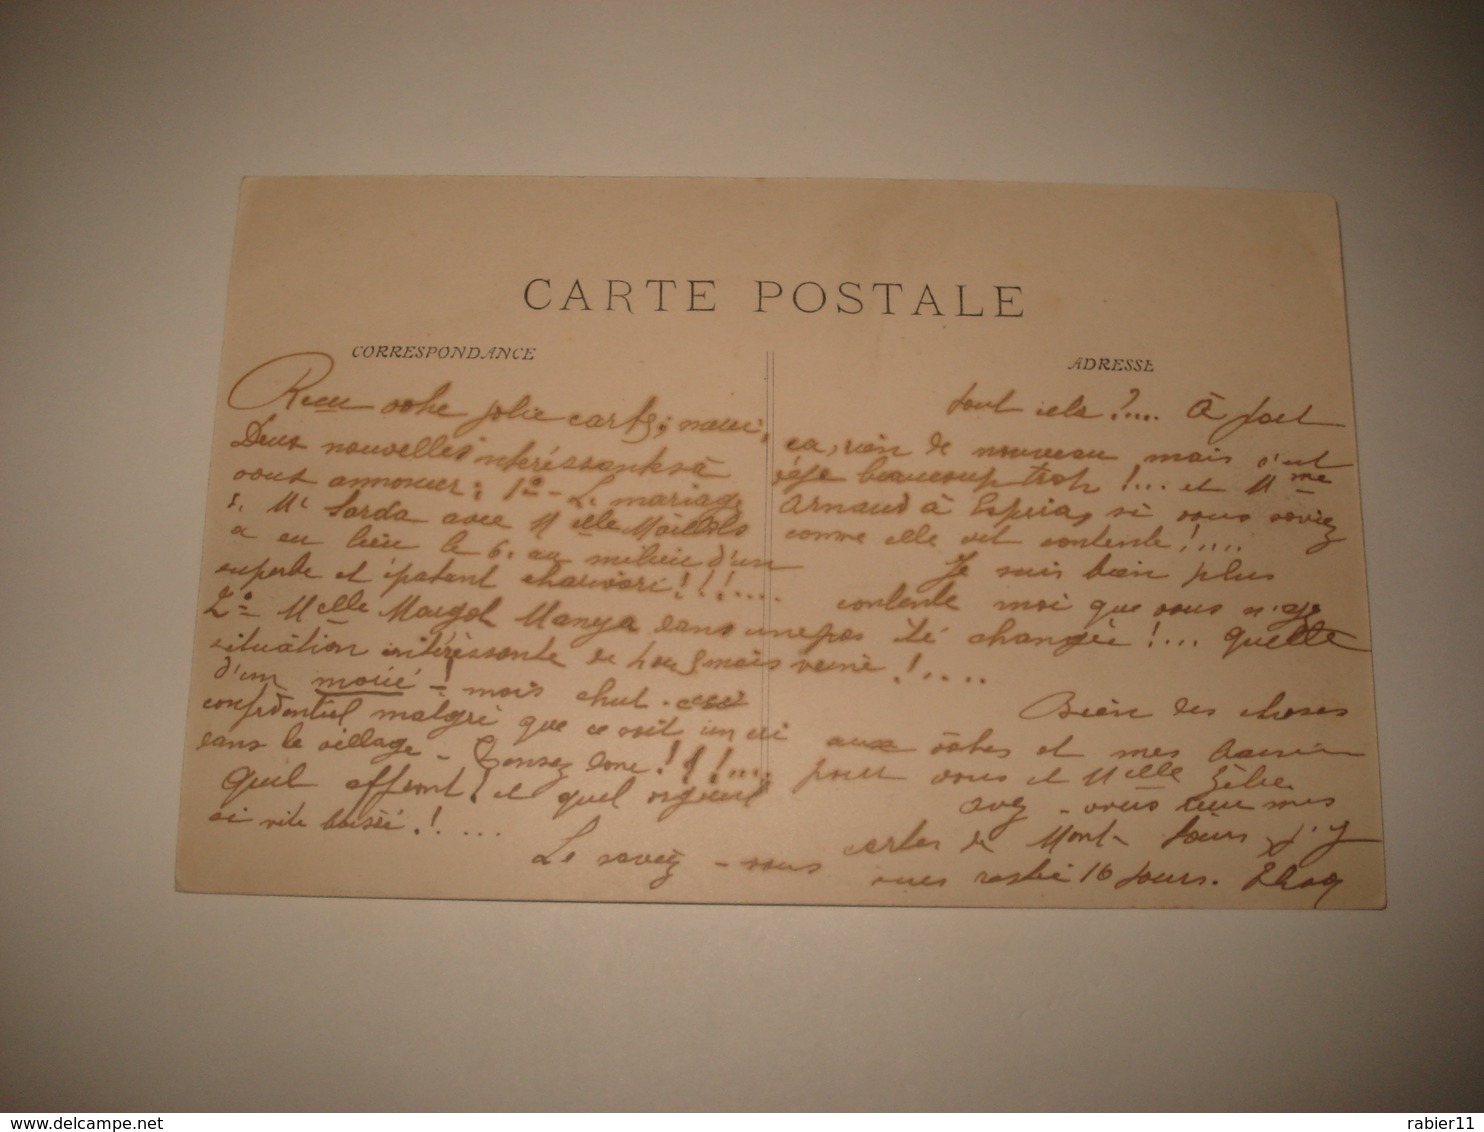 CARTE POSTALE
CORRESPONDANCE
Reçu votre jolie carte; merci,
Deux nouvelles intéréssantes à
vous annoncer: 1º - Le mariage
Mr Sarda avec Melle
a eu lieu le 6. au milieu d'un
superbe et épatant charivari!!!....
2º - Melle Margot Manya dans une
situation intéréssante de mois
d'un - mais chut.
confidentiel malgré que ce soit un cri
dans le village - Pensez donc!!!....
Quel affront! et quel orgueil
si vite baissé!....
Le saviez - vous
ADRESSE
tout cela?.... À part
ça, rien de nouveau mais c'est
déjà beaucoup trop!... et Mme
Arnaud à Espira, si vous saviez
comme elle est contente!....
Je suis bien plus
contente moi que vous n'ayez
pas été changée!... Quelle
veine!....
Bien des choses
aux vôtres et mes
pour vous et Melle
avez - vous eu mes
cartes de Mont - Louis, j'y
suis restée 16 jours.
delcampe.net
rabier11